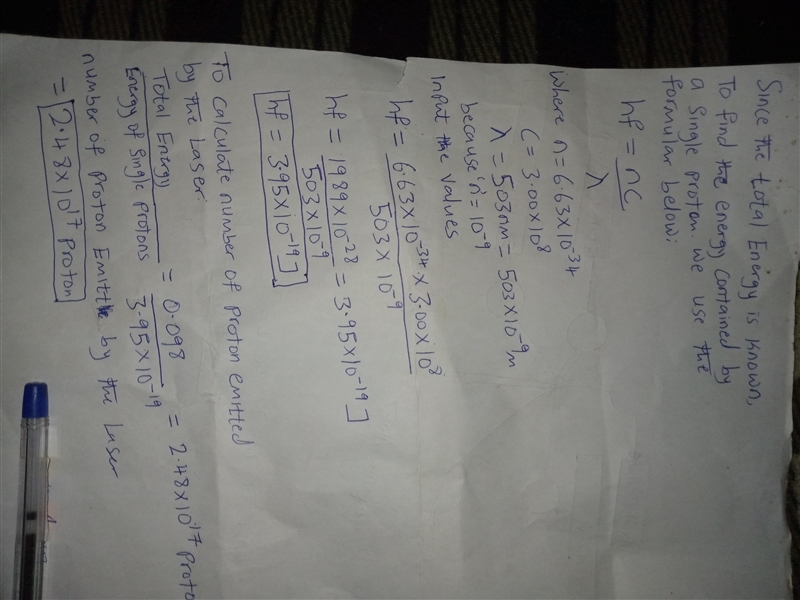 Since the total Energy is known,
To find the energy contained by
a single proton. we use the
formular below:
hf = nc
λ
where n = 6.63×10⁻³⁴
C = 3.00×10⁸
λ = 503nm = 503×10⁻⁹m
because 'n' = 10⁻⁹
Input the values
hf = 6.63×10⁻³⁴ × 3.00×10⁸
503×10⁻⁹
hf = 1989×10⁻²⁸ = 3.95×10⁻¹⁹J
503×10⁻⁹
hf = 3.95×10⁻¹⁹J
To calculate number of proton emitted
by the Laser.
Total Energy = 0.098 = 2.48×10¹⁷ proto
Energy of single protons 3.95×10⁻¹⁹
number of proton Emitte by the Laser
= 2.48×10¹⁷ proton